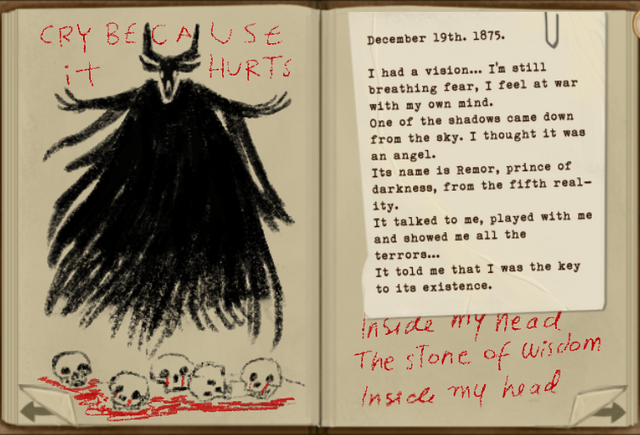 CRY BECAUSE
it HURTS
December 19th. 1875.
I had a vision... I'm still
breathing fear, I feel at war
with my own mind.
One of the shadows came down
from the sky. I thought it was
an angel.
Its name is Remor, prince of
darkness, from the fifth real-
ity.
It talked to me, played with me
and showed me all the
terrors...
It told me that I was the key
to its existence.
Inside my head
The stone of Wisdom
Inside my head